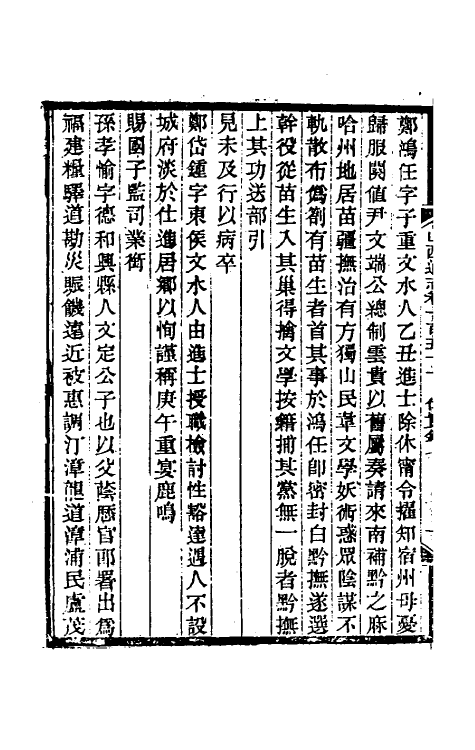 鄭鴻任字子重文水人乙丑進士除休甯令擢知宿州母憂
歸服闋值尹文端公總制雲貴以舊屬奏請來南補黔之麻
哈州地居苗疆撫治有方獨山民韋文學妖術惑眾陰謀不
軌散布僞劄有苗生者首其事於鴻任卽密封白黔撫遂選
幹役從苗生入其巢得擒文學按籍捕其黨無一脫者黔撫
上其功送部引
見未及行以病卒
鄭岱鍾字東侯文水人由進士授職檢討性豁達遇人不設
城府淡於仕進居鄉以恂謹稱庚午重宴鹿鳴
賜國子監司業銜
孫孝愉字德和興縣人文定公子也以父蔭歷官郎署出爲
福建糧驛道勘災賑饑遠近被惠調汀漳龍道漳浦民盧茂